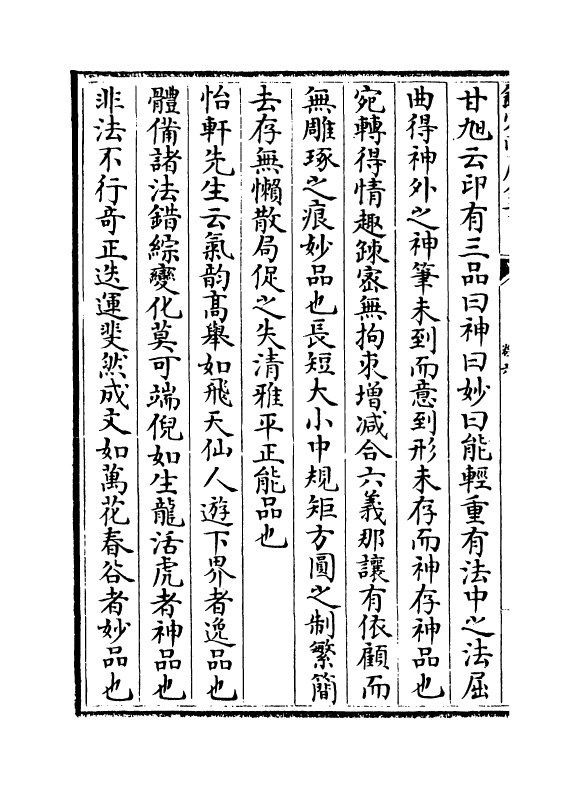 甘旭云印有三品曰神曰妙曰能輕重有法中之法屈
曲得神外之神筆未到而意到形未存而神存神品也
宛轉得情趣踈宻無拘束增減合六義那讓有依顧而
無雕琢之痕妙品也長短大小中規矩方圓之制繁簡
去存無懶散局促之失清雅平正能品也
怡軒先生云氣韵髙舉如飛天仙人遊下界者逸品也
體備諸法錯綜變化莫可端倪如生龍活虎者神品也
非法不行竒正迭運斐然成文如萬花春谷者妙品也